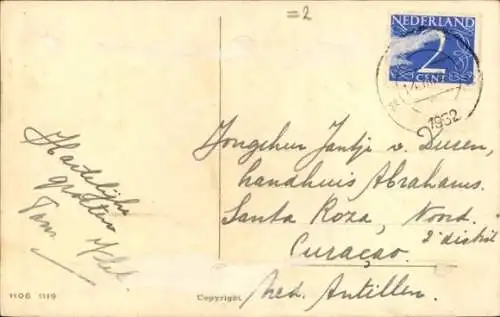 =2
NEDERLAND
2
CENT
1952
Jongeheer Jantje v. Duren,
Landhuis Abrahams.
Santa Roza, Noord.
2e distrikt
Curaçao.
Ned. Antillen.
Hartelijke
groeten
Tom
1106 1119
Copyright